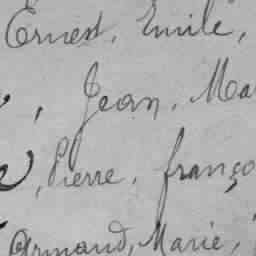 Ernest, Emile,
, Jean, Ma
, Pierre, franço
Armand, Marie,